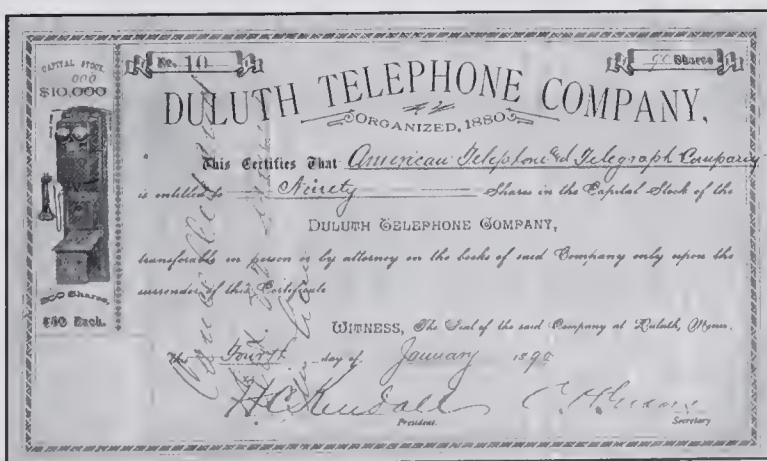 No. 10
90 Shares
CAPITAL STOCK.
000
$10,000
DULUTH TELEPHONE COMPANY,
ORGANIZED, 1880
This Certifies That American Telephone and Telegraph Company
is entitled to Ninety Shares in the Capital Stock of the
DULUTH TELEPHONE COMPANY,
transferable in person or by attorney on the books of said Company only upon the
surrender of this Certificate
200 Shares,
$50 Each.
WITNESS, The Seal of the said Company at Duluth, Minn.
The Fourth day of January 1890
H C Kendall
President.
Secretary
Cancelled